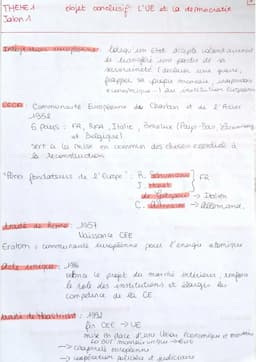 THEME 1 objet conclusif L'UE et la démocratie
Jalon 1
Intégration européenne : lorsqu'un État accepte volontairement
de transférer une partie de sa
souveraineté (déclarer une guerre,
frapper sa propre monnaie,
économique...) aux institutions Européennes
CECA : Communauté Européenne du Charbon et de l'Acier
1952
6 pays : FR, RFA, Italie, Benelux (Pays-Bas, Luxembourg
et Belgique)
sert à la mise en commun des choses essentiels à
la reconstruction
"Pères fondateurs de l'Europe" : R. Schuman
J. Monet
FR
de Gasperi → Italien
C. → allemand
traité de Rome : 1957
Naissance CEE
Eratom : communauté européenne pour l'énergie atomique
Acte unique : 1986
relance le projet du marché intérieur, renforce
le rôle des institutions et élargir les
compétences de la CE
traité de Maastricht : 1992
fin CEE → UE
mise en place d'une Union Economique et monétaire
→ euro
→ citoyenneté européenne
→ coopération policière et judiciaire